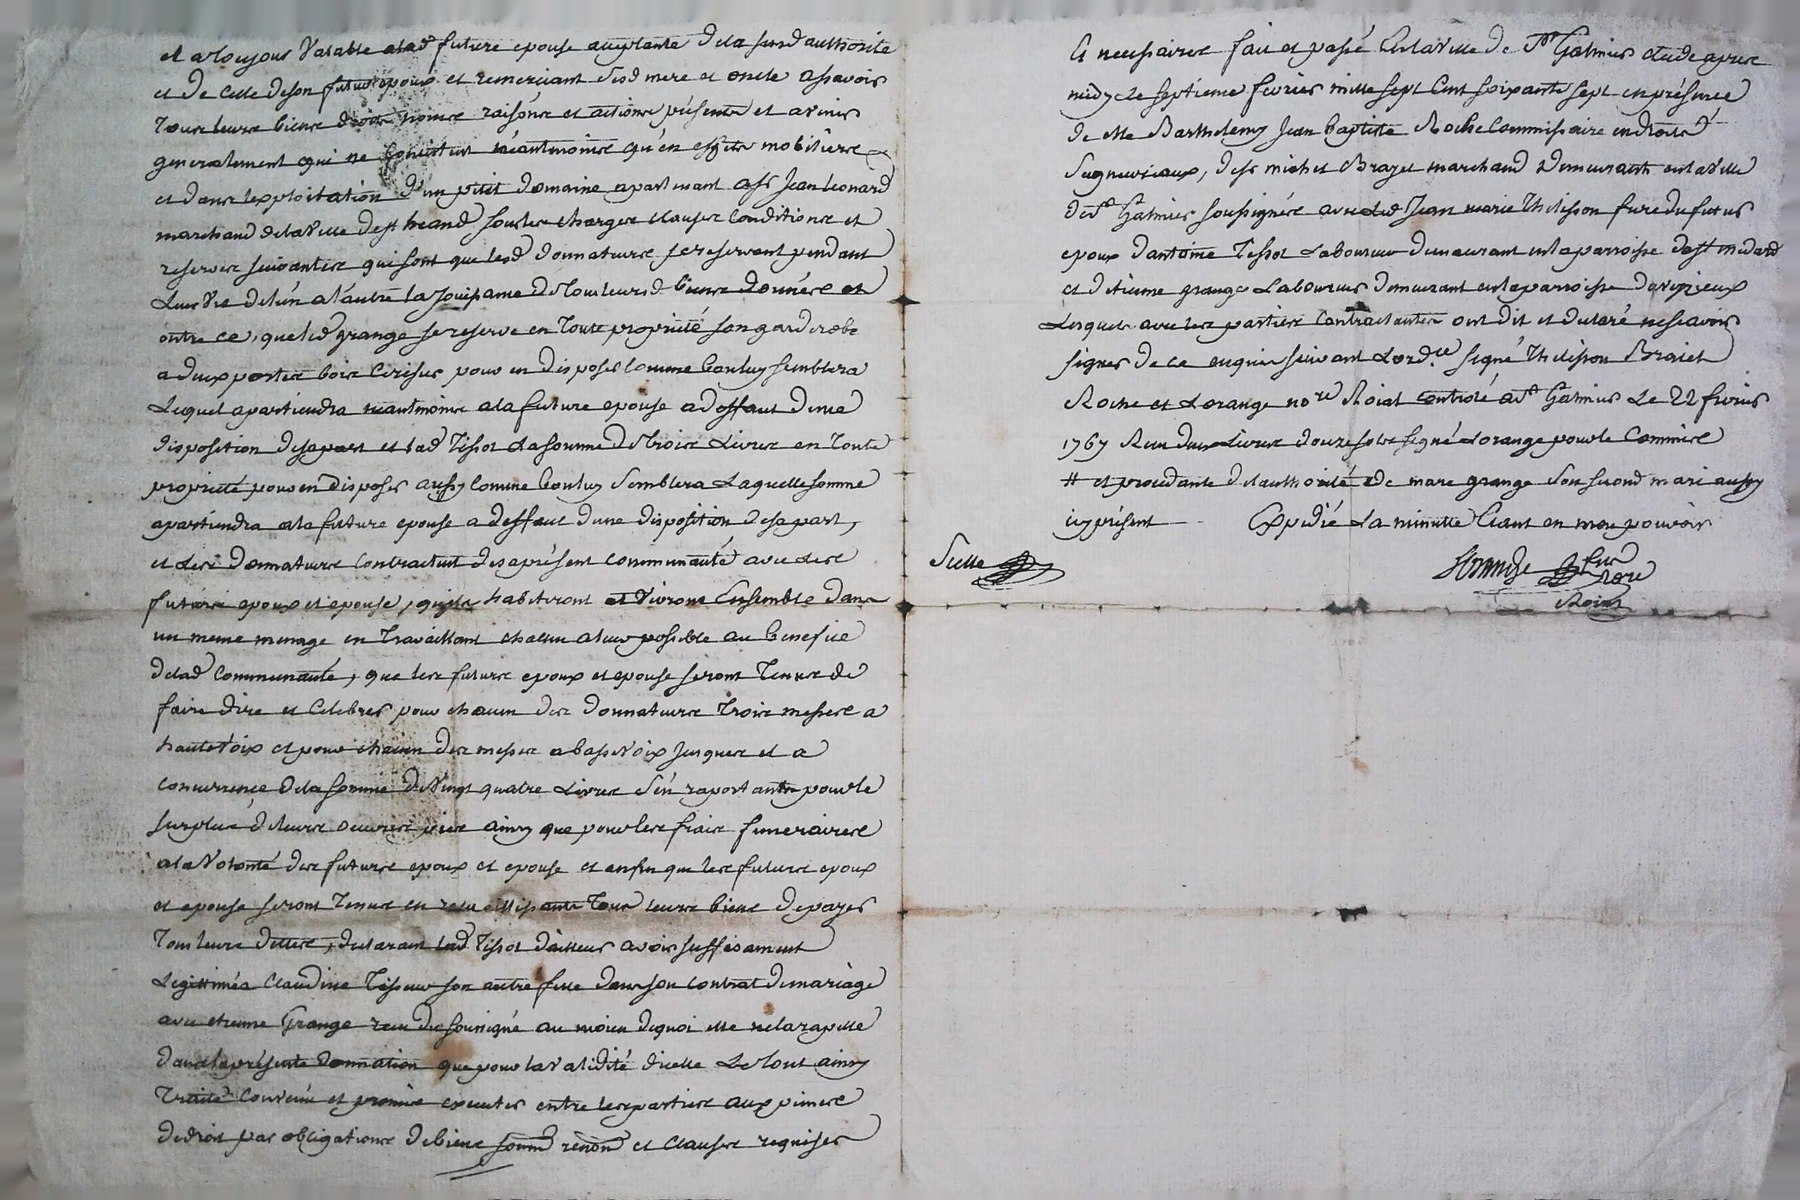 et a toujour valable a lad future epouse acceptante de la susd authorité
et de celle de son futur epoux et remerciant sesd mere et oncle assavoir
tous leurs biens droits noms raisons et actions présents et avenir
generalement qui ne consistent néantmoins qu'en effets mobiliers
et dans l'exploitation d'un petit domaine apartenant a sr Jean leonard
marchand de la ville de st heand sous les charges clauses conditions et
reserves suivantes qui sont que lesd donnateurs se reservent pendant
leur vie de l'un a l'autre la jouissance de tous leursd biens donnés et
outre ce, que led grange se reserve en toute proprieté son garderobe
a deux portes bois cerisier pour en disposer comme bon luy semblera
lequel apartiendra neantmoins a la future epouse a deffaut d'une
disposition de sa part et lad Tissot la somme de trois livres en toute
proprieté pour en disposer aussy comme bon luy semblera laquelle somme
apartiendra a la future epouse a deffaut d'une disposition de sa part,
et lesd donnateurs contractent des aprésent communauté avec lesd
futurs epoux et epouse, qu'ils habiteront et vivront ensemble dans
un meme menage en travaillant chacun a leur possible au benefice
de lad communauté, que les futurs epoux et epouse seront tenus de
faire dire et celebrer pour chacun des donnateurs trois messes a
haute voix et pour chacun des messes a basse voix jusques et a
concurrence de la somme de vingt quatre livres s'en raportants pour le
surplus de leurs oeuvres pies ainsy que pour les frais funeraires
a la volonté des futurs epoux et epouse et enfin que les futurs epoux
et epouse seront tenus en recueillissants tous leurs biens de payer
tous leurs dettes, declarant lad Tissot d'ailleurs avoir suffisament
legittimée Claudine Tisseur son autre fille dans son contrat de mariage
avec etienne Grange reçu du soussigné au moien de quoi elle ne la rapelle
dans la présente donnation que pour la validité d'icelle Le tout ainsy
traité convenu et promis executer entre les parties aux peines
de droit par obligations de biens soum renon et clauses requises
& necessaires fait et passé en la ville de St Galmier etude apres
midy le septieme fevrier mille sept cent soixante sept en présence
de Me Barthelemy Jean baptiste Roche Commissaire en droits
seigneuriaux, de sr michel Brazet marchand demeurants en la ville
de st Galmier soussignés avec led Jean marie Thelisson frere du futur
epoux d'antoine Tissot laboureur demeurant en la parroisse de st medard
et d'etienne grange laboureur demeurant en la parroisse d'aveizieux
lesquels avec les parties contractantes ont dit et declaré ne scavoir
signer de ce enquis suivant l'ordce signé Thelisson Brazet
Roche et Lorange nore Roial controlé a st Galmier le 22 fevrier
1767 Reçu deux livres douze sols signé Lorange pour le commis
# et procedante de l'authorité de marc grange son second mari aussy
icy présent Expedié la minutte étant en mon pouvoir
Lorange
nore
Roial